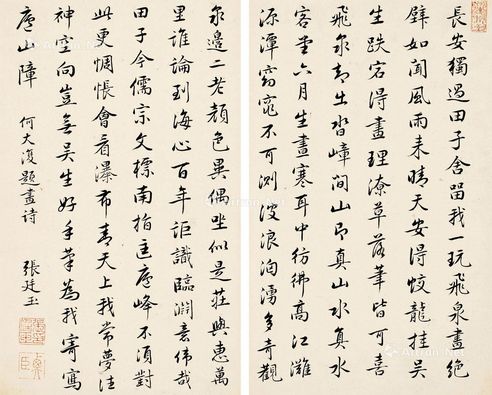 長安獨過田子舍留我一玩飛泉畫絕
壁如聞風雨来晴天安得蛟龍挂吴
生跌宕得畫理潦草落筆皆可喜
飛泉却出沓嶂間山即真山水真水
客堂六月生晝寒耳中彷彿高江灘
源潭窈窕不可測波浪洶湧多奇觀
泉邊二老顏色異偶坐似是莊與惠萬
里誰論到海心百年詎識臨淵意偉哉
田子今儒宗文標南指匡廬峰不須對
此更惆悵會看瀑布青天上我常夢往
神空向豈無吴生好手筆為我寄寫
廬山障 何大復題畫詩 張廷玉